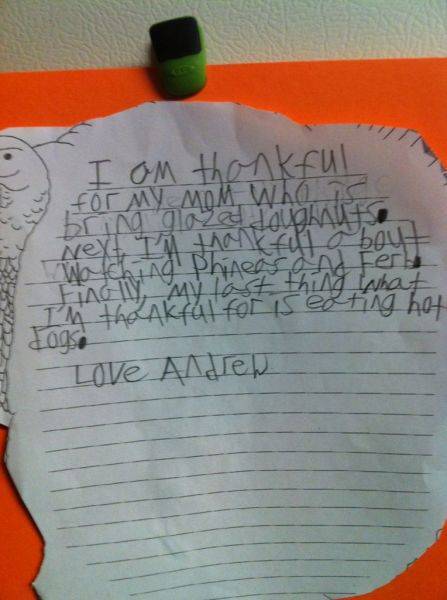 I am thankful
for my mom who is
bring glazed doughnuts.
Next I'm thankful about
watching Phineas and Ferb.
Finally, my last thing what
I'm thankful for is eating hot
dogs.
Love Andrew